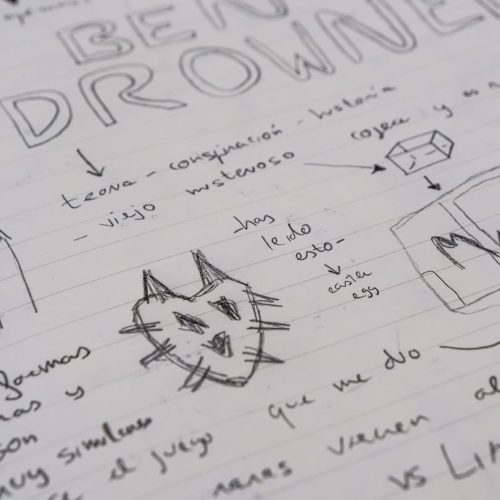 BEN
DROWNE
teoria - conspiración - historia
- viejo misterioso
coger y
-has
leido
esto-
easter
egg
formas
y
son
muy similares
el juego que me dio
vienen al
vs LIN